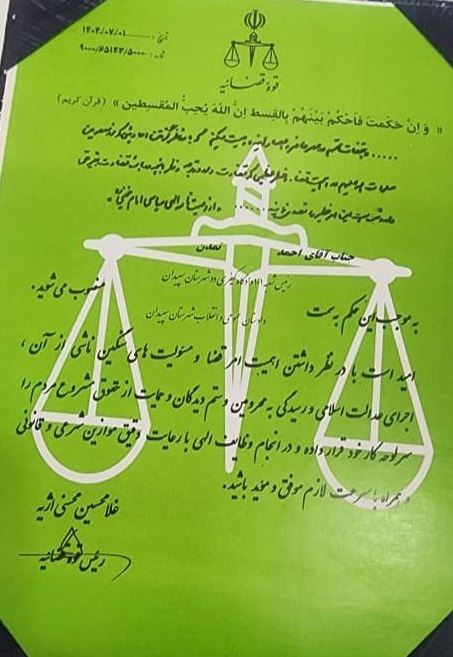 تاریخ: ۱۴۰۲/۰۷/۰۱
شماره: ۹۰۰۰/۶۵۱۴۳/۵۰۰۰
قوه قضائیه
« وَ اِنْ حَکَمتَ فَاحْکُمْ بَیْنَهُمْ بِالقِسطِ اِنَّ اللهَ یُحِبُّ المُقسِطین » (قرآن کریم)
« از وصیتنامه الهی سیاسی امام خمینی »
جناب آقای احمد تمدن
به موجب این حکم به سمت
رئیس شعبه دادگاه کیفری دو شهرستان سپیدان
دادستان عمومی و انقلاب شهرستان سپیدان
منصوب می شوید.
امید است با در نظر داشتن اهمیت امر قضا و مسئولیت های سنگین ناشی از آن ،
اجرای عدالت اسلامی و رسیدگی به محرومین و ستم دیدگان و حمایت از حقوق مشروع مردم را
سرلوحه کار خود قرار داده و در انجام وظایف الهی با رعایت دقیق موازین شرعی و قانونی
و همراه با سرعت لازم موفق و مؤید باشید.
غلامحسین محسنی اژیه
رئیس قوه قضائیه